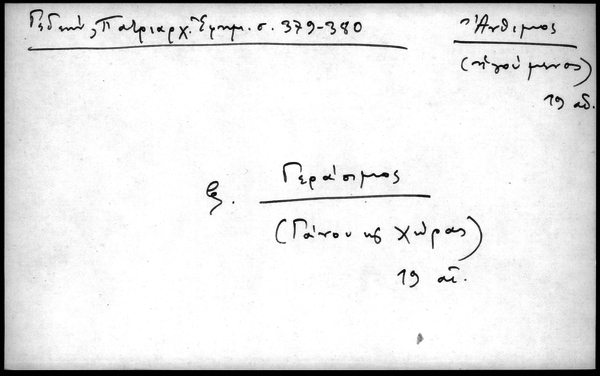 Γεδεών, Πατριαρχ. Ἐφημ. σ. 379-380
Ἄνθιμος
(ἡγούμενος)
19 αἰ.
Γεράσιμος
(Γάνου κ Χώρας)
19 αἰ.